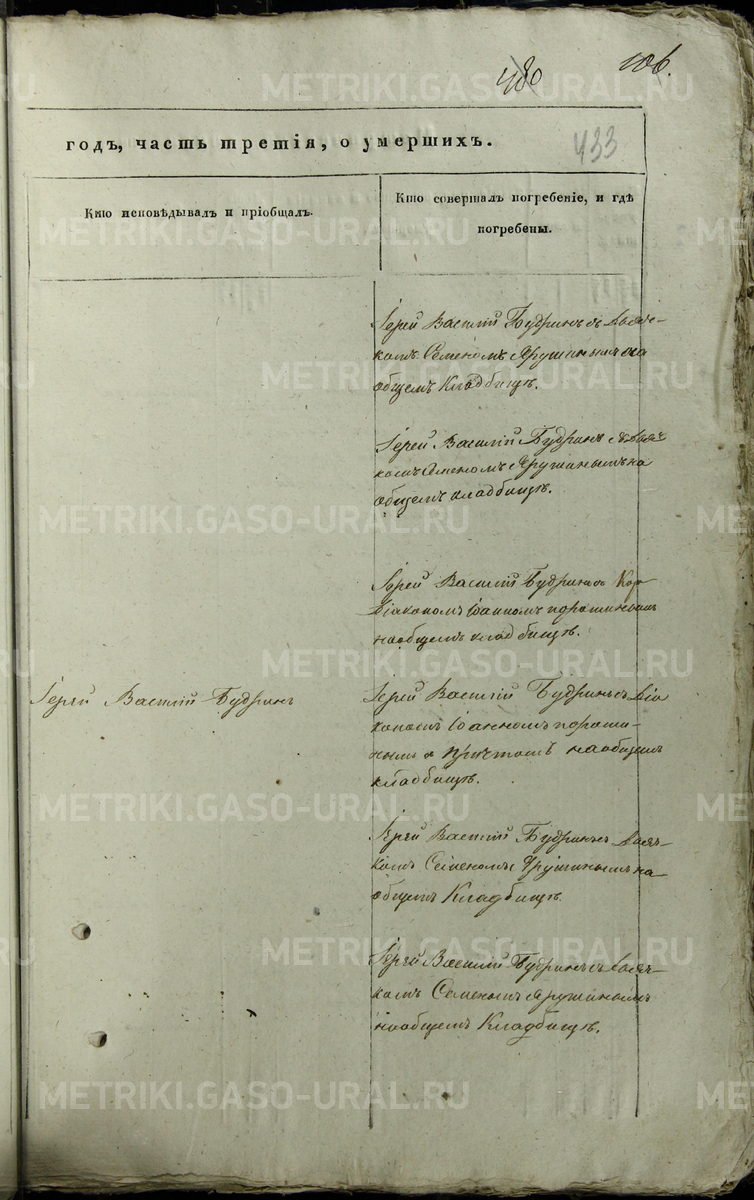 480
106.
годъ, часть третія, о умершихъ.
433
Кто исповѣдывалъ и пріобщалъ.
Кто совершалъ погребеніе, и гдѣ
погребены.
Іерей Василій Будринъ съ дьяч-
комъ Семеномъ Ярушинымъ на
общемъ Кладбищѣ.
Іерей Василій Будринъ съ дьяч
комъ Семеномъ Ярушинымъ на
общемъ кладбищѣ.
Іерей Василій Будринъ съ
діакономъ Іоанномъ порошинымъ
на общемъ кладбищѣ.
Іерей Василій Будринъ
Іерей Василій Будринъ съ діа
кономъ Іоанномъ пороши-
нымъ причтомъ на общемъ
кладбищѣ.
Іерей Василій Будринъ съ дьяч-
комъ Семеномъ Ярушинымъ на
общемъ Кладбищѣ.
Іерей Василій Будринъ съ дьяч-
комъ Семеномъ Ярушинымъ
на общемъ Кладбищѣ.
METRIKI.GASO-URAL.RU